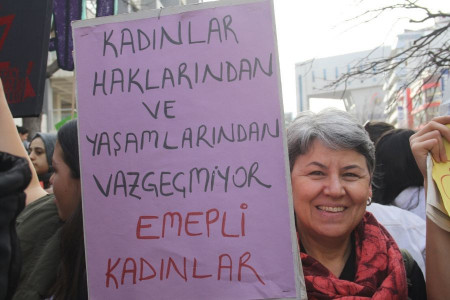 KADINLAR
HAKLARINDAN
VE
YAŞAMLARINDAN
VAZGEÇMİYOR
EMEPLİ
KADINLAR